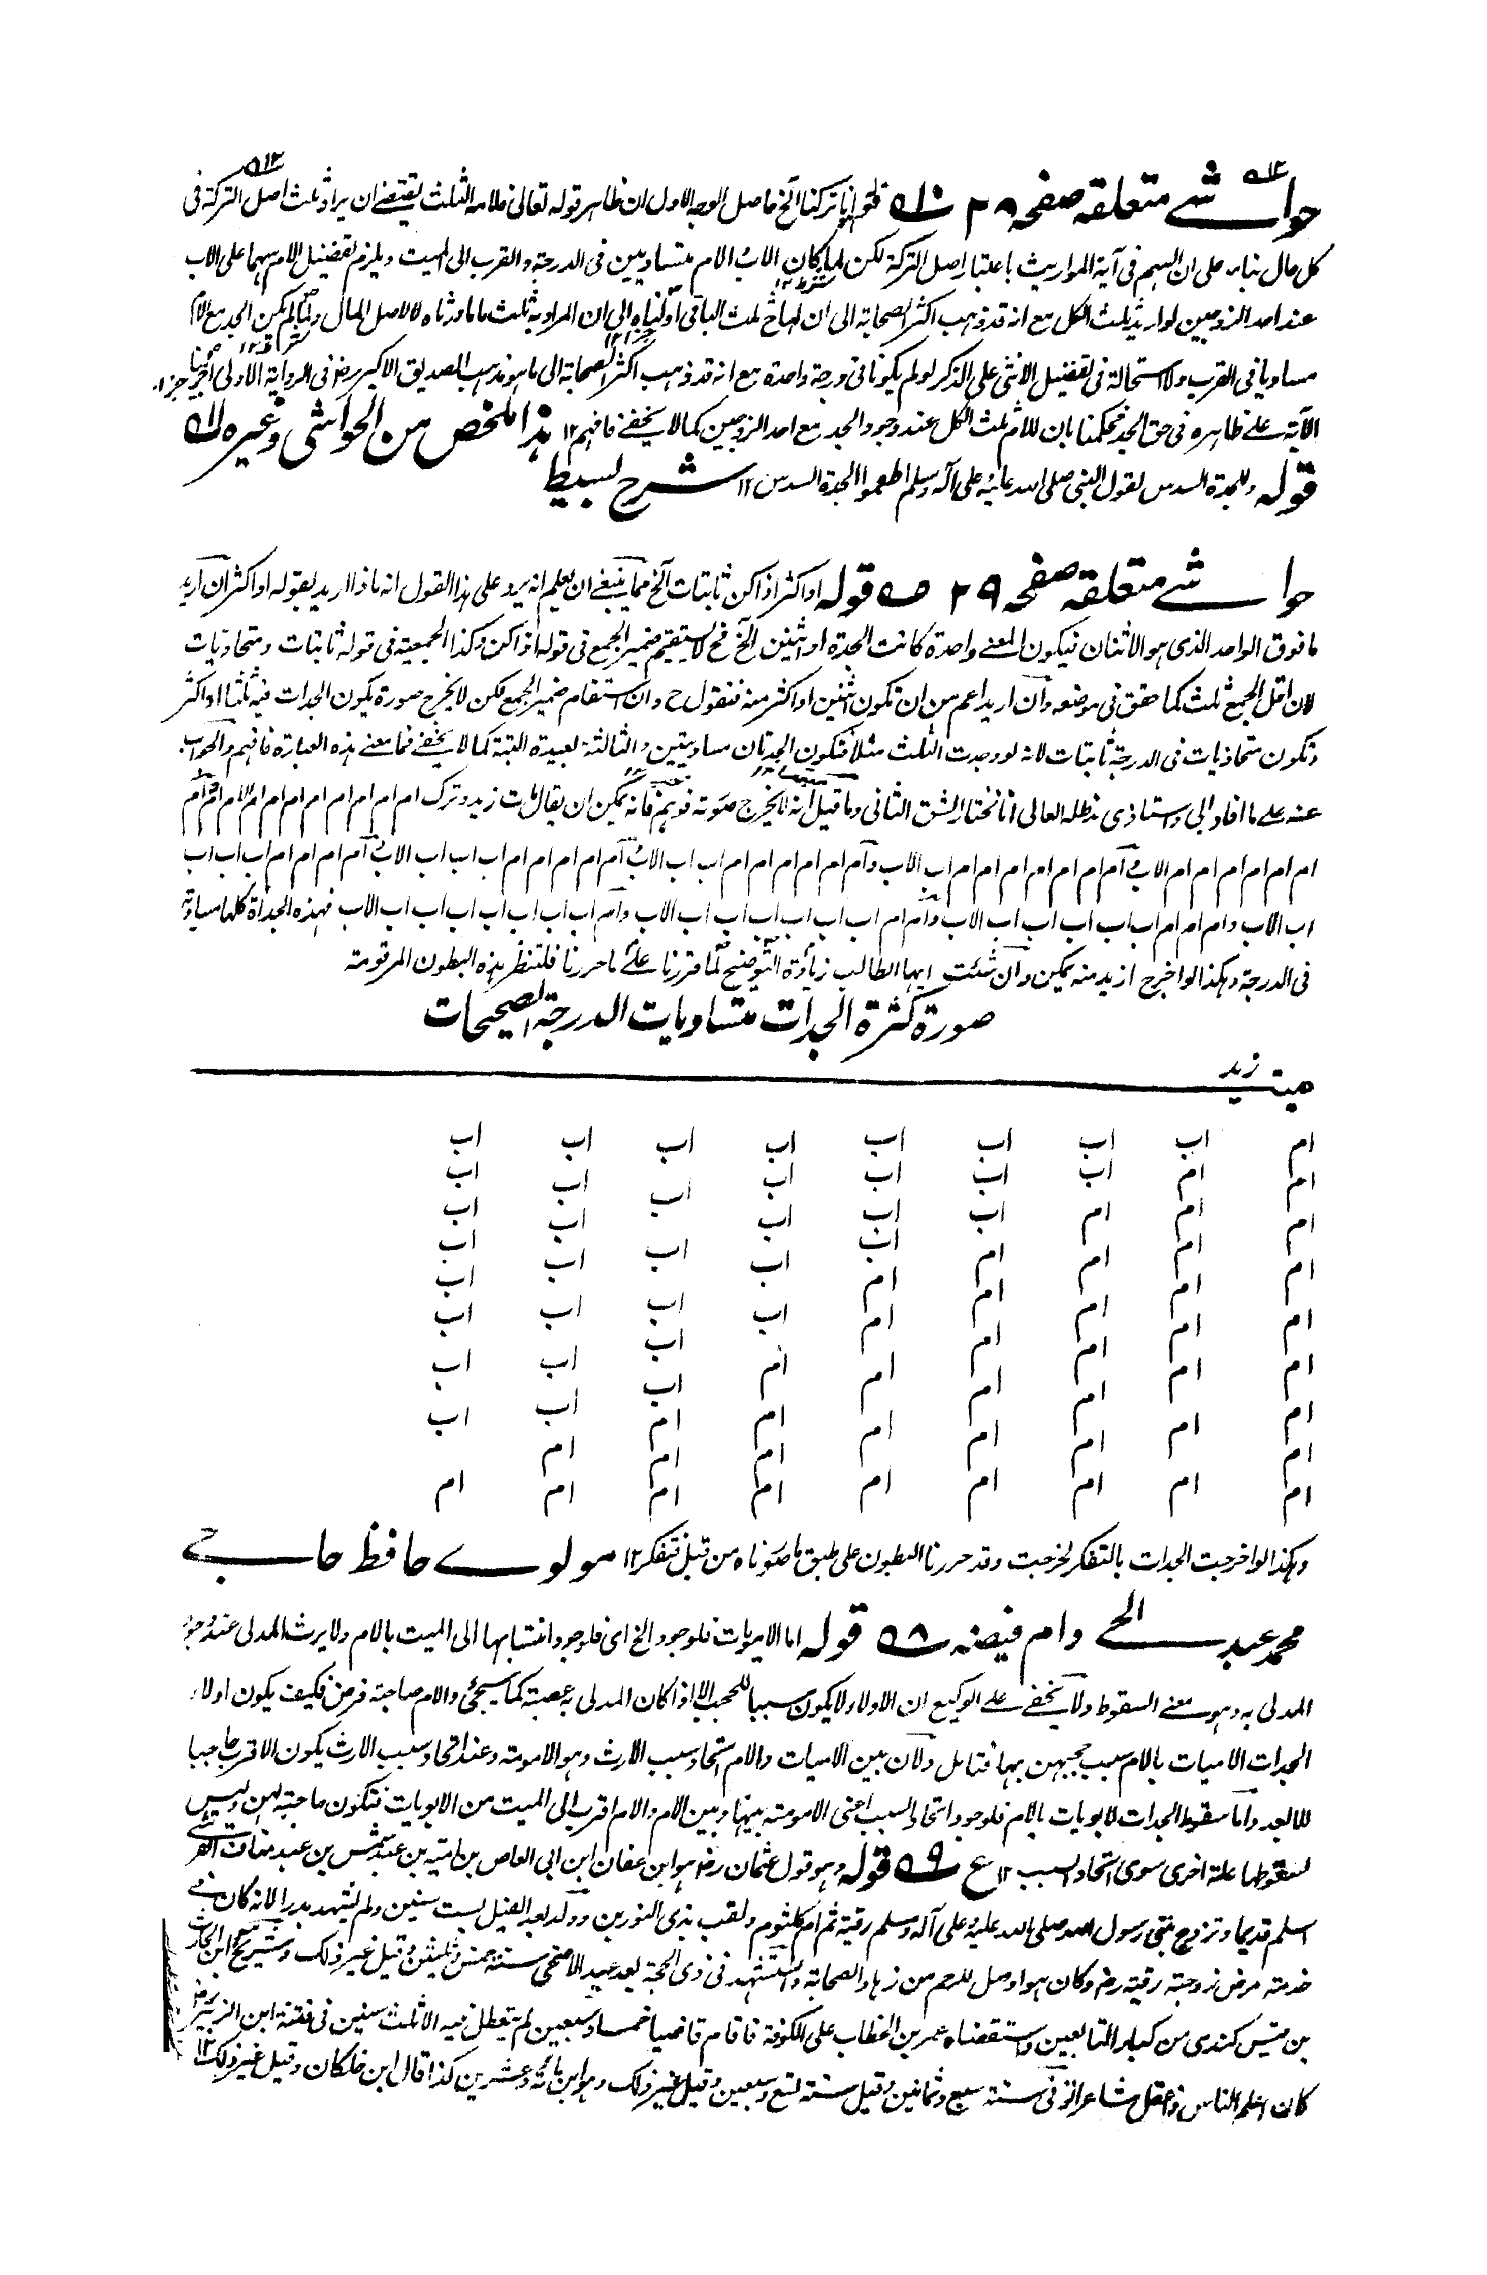 حواشے متعلقہ صفحہ ٢٨ قلنا انا تركنا الخ حاصل الوجہ الاول ان ظاہر قولہ تعالى فلامہ الثلث يقتضے ان يراد ثلث اصل التركۃ فى
كل حال بناء على ان السہم فى آيۃ المواريث باعتبار اصل التركۃ لكن لما كان الاب والام متساويين فى الدرجۃ والقرب الى الميت ويلزم تفضيل الام سہما على الاب
عند احد الزوجين لو اريد ثلث الكل مع انہ قد ذہب اكثر الصحابۃ الى ان لہا ح ثلث الباقى اولناہ الى ان المراد بہ ثلث ما ورثاہ لا لاصل المال ولما لم يكن الجد مع الام
مساويا فى القرب ولا استحالۃ فى تفضيل الانثى على الذكر لو لم يكونا فى درجۃ واحدة مع انہ قد ذہب اكثر الصحابۃ الى ما ہو مذہب الصديق الاكبر رض فى الرواية الاولى اجرينا
الآية على ظاہره فى حق الجد فحكمنا بان للام ثلث الكل عند وجود الجد مع احد الزوجين كما لا يخفے فافہم ١٢ ہذا ملخص من الحواشى وغيره
قولہ وللجدة السدس لقول النبى صلى اللہ عليہ وعلى آلہ وسلم اطعموا الجدة السدس ١٢ شرح بسيط
حواشے متعلقہ صفحہ ٢٩ قولہ او اكثر اذا كن ثابتات الخ مما ينبغے ان يعلم انہ يرد على ہذا القول انہ ماذا اريد بقولہ او اكثر ان اريد
ما فوق الواحد الذى ہو الاثنان فيكون المعنے واحدة كانت الجدة او اثنين الخ فح لا يستقيم ضمير الجمع فى قولہ اذا كن وكذا الجمعية فى قولہ ثابتات ومتحاذيات
لان اقل الجمع ثلث كما حقق فى موضعہ وان اريد اعم من ان تكون اثنين او اكثر منہ فنقول ح وان استقام ضمير الجمع لكن لا يخرج صورة يكون الجدات فيہ ثلثا او اكثر
وتكون متحاذيات فى الدرجۃ ثابتات لانہ لو وجدت الثلث مثلا فتكون الجدتان مساويتين والثالثۃ بعيدة البتۃ كما لا يخفے فما معنے ہذه العبارة فافہم والجواب
عنہ على ما افاد ابى واستاذى مد ظلہ العالى انا نختار الشق الثانى وما قيل انہ لا يخرج صورتہ فوہم فانہ يمكن ان يقال مات زيد وترك ام ام ام ام ام ام ام ام ام الام
ام ام ام ام ام ام ام ام الاب و ام ام ام ام ام ام ام اب الاب و ام ام ام ام ام ام اب اب الاب و ام ام ام ام ام اب اب اب الاب و ام ام ام ام اب اب اب اب
اب الاب و ام ام ام اب اب اب اب اب الاب و ام ام اب اب اب اب اب اب الاب و ام اب اب اب اب اب اب اب الاب فہذه الجداة كلہا مساوية
فى الدرجۃ وہكذا لو اخرج ازيد منہ يمكن وان شئت ايہا الطالب زيادة التوضيح لما قررنا على ما حررنا فلتنظر ہذه البطون المرقومة
صورة كثرة الجدات متساويات الدرجۃ الصحيحات
ميت زيد
ام اب اب اب اب اب اب اب اب
ام ام اب اب اب اب اب اب اب
ام ام ام اب اب اب اب اب اب
ام ام ام ام اب اب اب اب اب
ام ام ام ام ام اب اب اب اب
ام ام ام ام ام ام اب اب اب
ام ام ام ام ام ام ام اب اب
ام ام ام ام ام ام ام ام اب
ام ام ام ام ام ام ام ام ام
وہكذا لو اخرجت الجدات بالتفكر لخرجت وقد حررنا البطون على طبق ما صورناه من قبل فتفكر ١٢ مولوے حافظ حاجے
محمد عبد الحے دام فيضہ قولہ اما الابويات فلوجود الخ اى فلوجود انتسابہا الى الميت بالام ولا يرث المدلى عند وجود
المدلى بہ وہو معنے السقوط ولا يخفے على الوكيع ان الاولاء لا يكون سببا للحجب الا اذا كان المدلى بہ عصبۃ كما سيجئ والام صاحبۃ فرض فكيف يكون اولاء
الجدات الاميات بالام سبب حجبہن بہا فتامل ولان بين الاميات والام اتحاد سبب الارث وہو الامومة وعند اتحاد سبب الارث يكون الاقرب حاجبا
للابعد واما سقوط الجدات الابويات بالام فلوجود اتحاد السبب اعنى الامومة بينہا وبين الام والام اقرب الى الميت من الابويات فتكون حاجبۃ لہن وليس
لسقوطہا علۃ اخرى سوى اتحاد السبب ١٢ ع قولہ وہو قول عثمان رض ہو ابن عفان ابن ابى العاص بن اميۃ بن عبد شمس بن عبد مناف القرشے
اسلم قديما وتزوج بنتى رسول اللہ صلى اللہ عليہ وعلى آلہ وسلم رقيۃ ثم ام كلثوم ولقب بذى النورين وولد بعد الفيل بست سنين ولم يشہد بدرا لانہ كان فے
خدمۃ مرض زوجتہ رقيۃ رض وكان ہو اوصل للرحم من زہاد الصحابۃ واستشہد فى ذى الحجۃ بعد عيد الاضحى سنۃ خمس وثلثين وقيل غير ذلك وشريح ابن الحارث
بن قيس كندى من كبار التابعين واستقضاه عمر بن الخطاب على الكوفۃ فاقام قاضيا خمسا وسبعين لم يتعطل فيہ الا ثلث سنين فى فتنۃ ابن الزبير رض
كان اعلم الناس ذا عقل شاعرا توفى سنۃ سبع وثمانين وقيل سنۃ تسع وسبعين وقيل غير ذلك وہو ابن مائۃ وعشرين كذا قال ابن خلكان وقيل غير ذلك ١٢